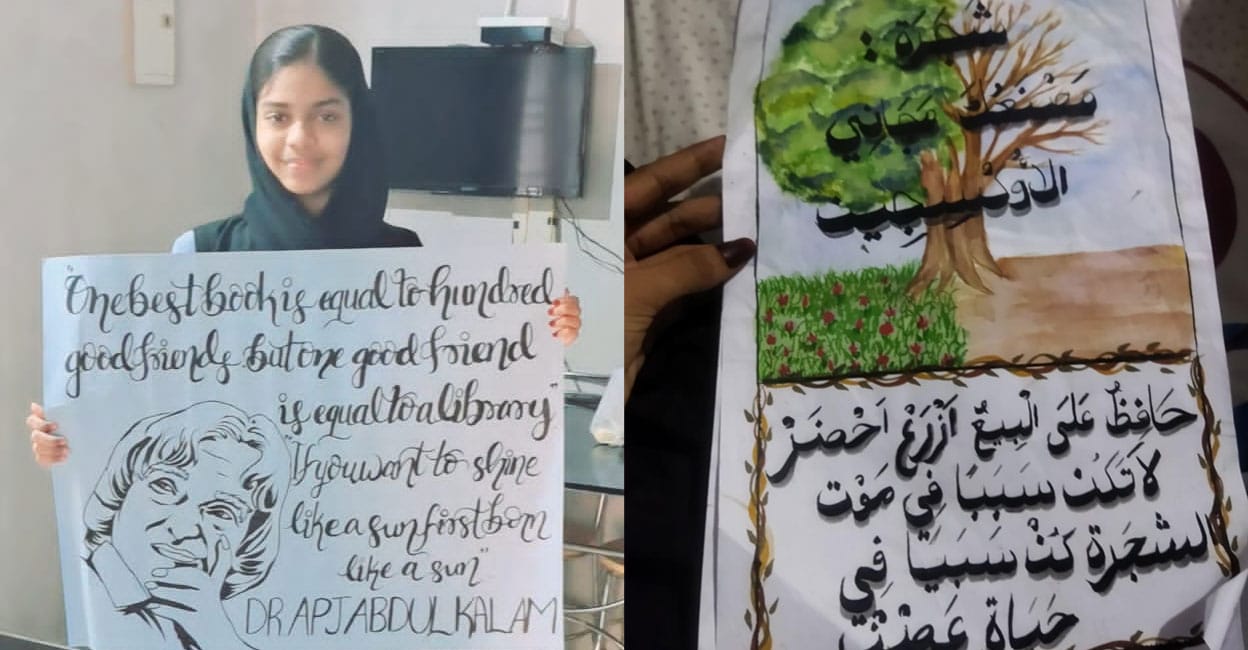 "One best book is equal to hundred
good friends but one good friend
is equal to a library"
"If you want to shine
like a sun first born
like a sun"
DR APJ ABDUL KALAM
شَجَرَةٌ:
مَصْنَعٌ مَجَانِي
الأُوكْسِجِيت
حَافِظْ عَلَى الْبِيعٌ اَزْرَعْ اَحْضَرْ
لاَتَكُنْ سَبَبًا فِي مَوْت
الشجَرَة كُنْ سَبَبًا فِي
حَيَاة غَصْنٍ